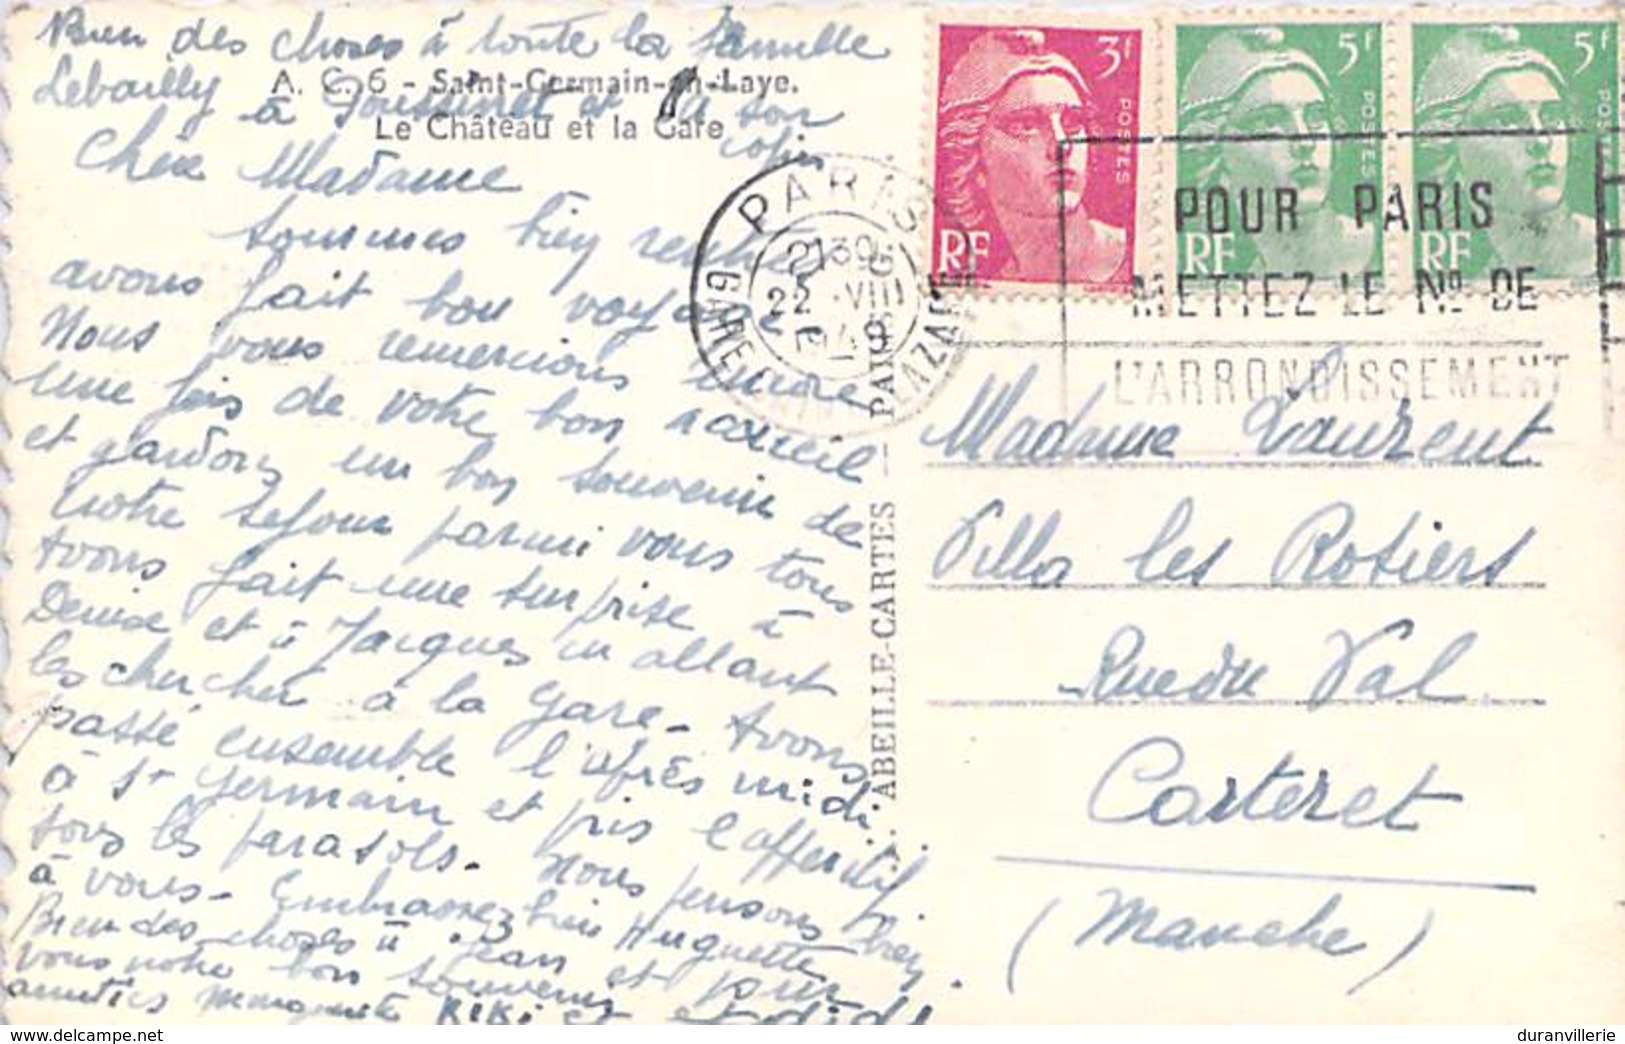 Bien des choses à toute la famille
Lebailly à Goussinet et à son
copin
A. C. 6 - Saint-Germain-en-Laye.
Le Château et la Gare
Chère Madame
Sommes bien rentrés
avons fait bon voyage
Nous vous remercions encore
une fois de votre bon accueil
et gardons un bon souvenir de
notre séjour parmi vous tous
Avons fait une surprise à
Denise et à Jacques en allant
les chercher à la gare - Avons
passé ensemble l'après midi
à St Germain et pris l'apperitif
sous les parasols - Nous pensons bien
à vous - Embrassez bien Huguette
Bien des choses à Jean et pour
vous notre bon souvenir
amitiés Marguerite RiKi et
ABEILLE-CARTES — PARIS
PARIS
GARE SAINT LAZARE
2130
22 VIII
1949
3f
POSTES
RF
5f
POSTES
RF
5f
POSTES
RF
POUR PARIS
METTEZ LE No DE
L'ARRONDISSEMENT
Madame Laurent
Villa les Rosiers
Rue du Val
Carteret
(Manche)
duranvillerie